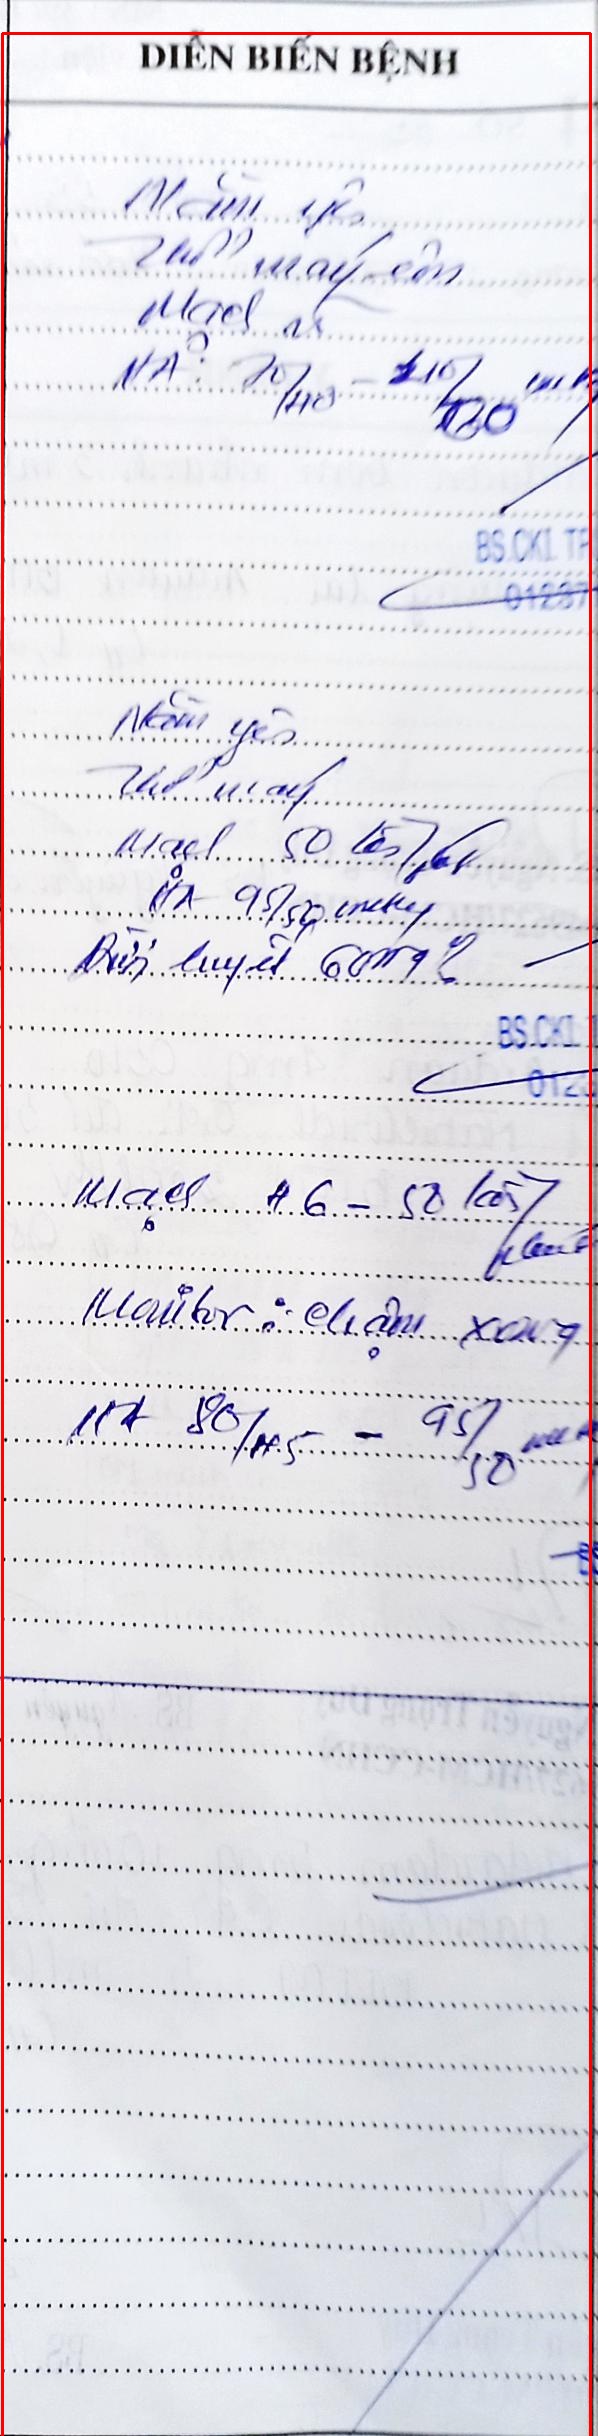 DIỄN BIẾN BỆNH
Nằm yên
Thở máy êm
Mạch rõ
HA: 70/40 - 110/60
BS.CKI. TR
01237
Nằm yên
Thở máy
Mạch 50 lần/phút
HA 95/50 mmHg
60mg%
BS.CKI.
012
Mạch 46 - 50 lần/
phút
Monitor: chậm xoang
HA 80/45 - 95/50